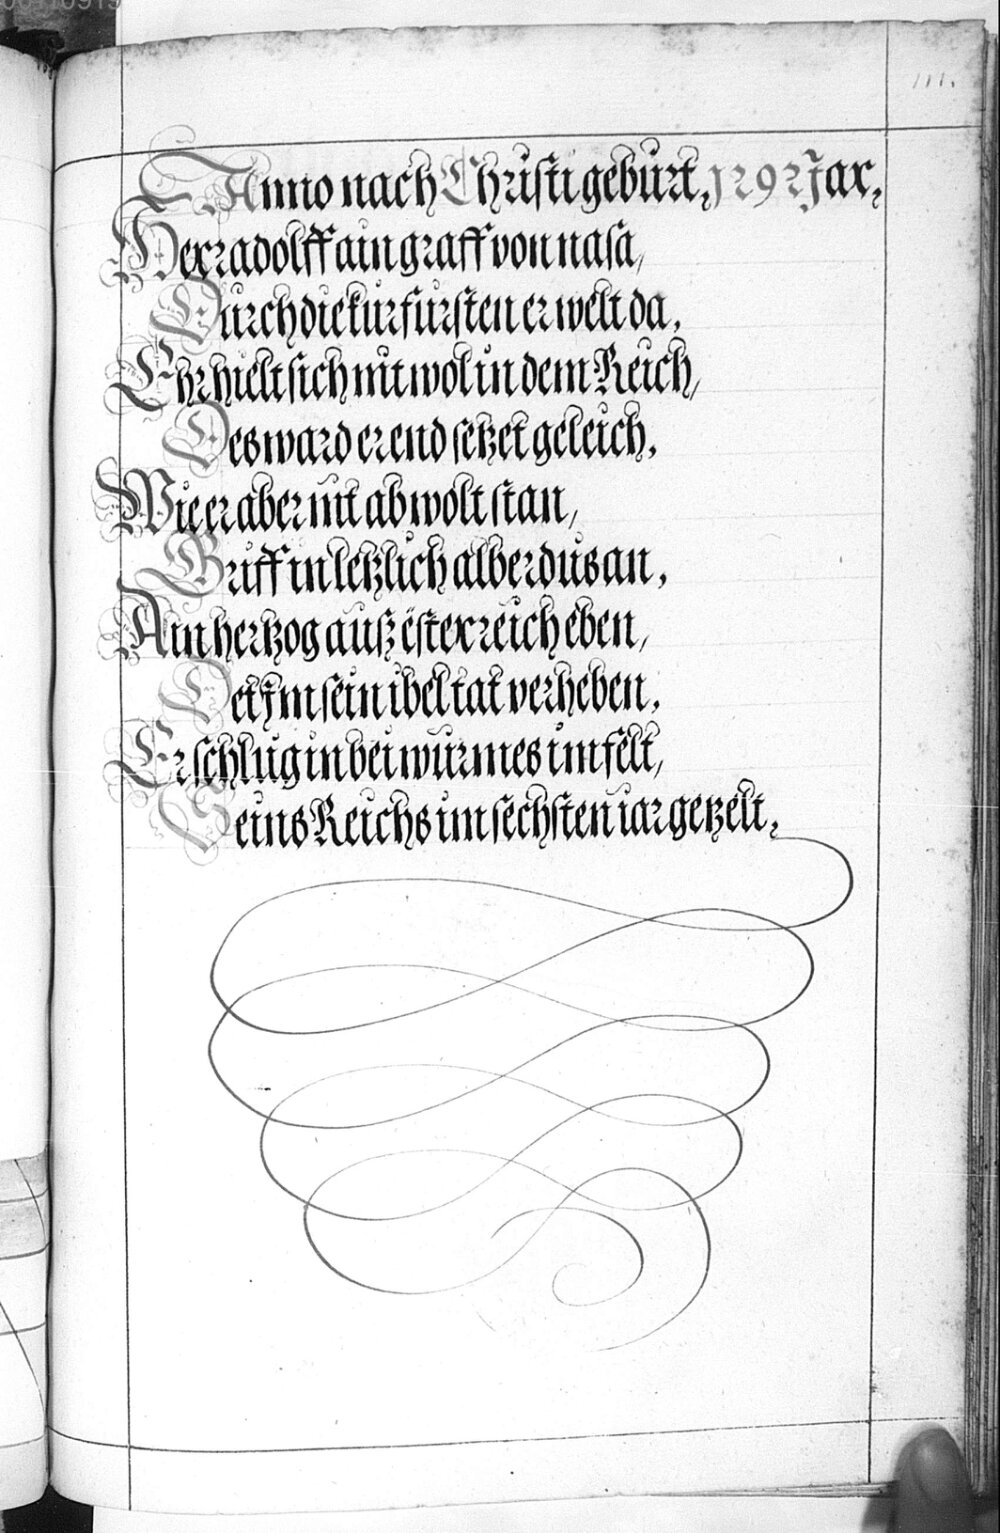 00110919
111.
Anno nach Christi geburt, 1292 Jar,
Her radolff ain graff von nasa,
Durch die kurfursten er welt da,
Ehr hielt sich nit wol in dem Reich,
Des ward er end setzet geleich,
Wie er aber nit ab wolt stan,
Griff in letzlich alberdus an,
Ain hertzog auß esterreich eben,
Det im sein ibeltat verheben,
Er schlug in bei wurmes im felt,
Seins Reichs im sechsten iar getzelt,